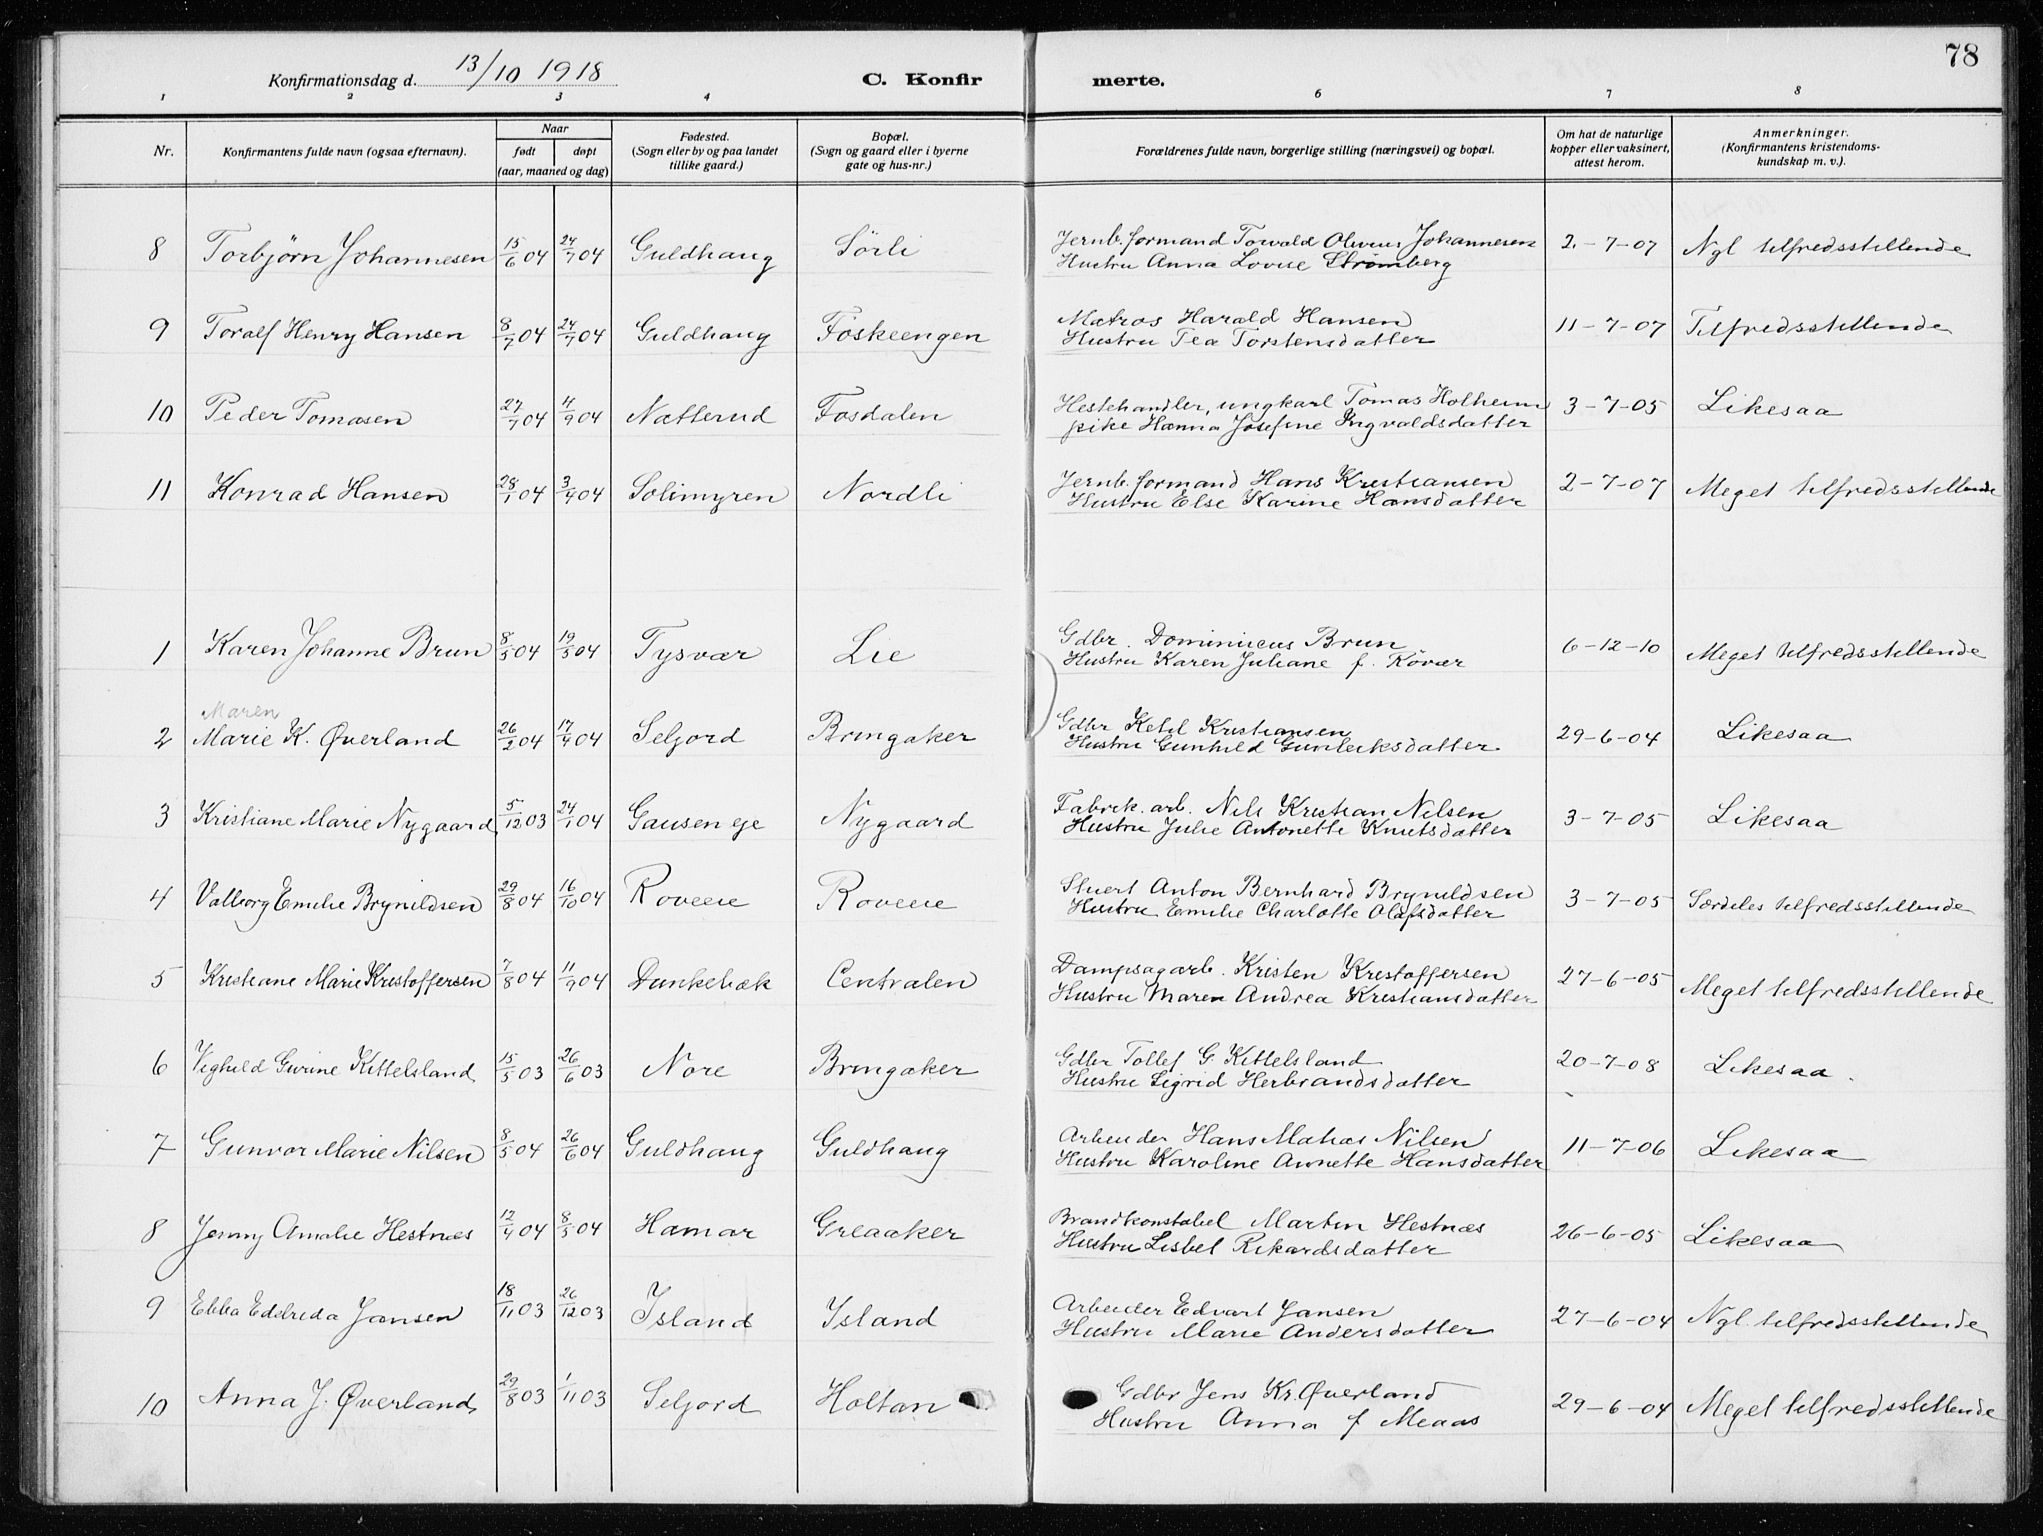 78
Konfirmationsdag d. 13/10 1918 C. Konfirmerte.
1 2 3 4 6 7 8
Nr. Konfirmantens fulde navn (ogsaa efternavn). Naar født døpt (aar, maaned og dag) Fødested. (Sogn eller by og paa landet tillike gaard.) Bopæl. (Sogn og gaard eller i byerne gate og hus-nr.) Forældrenes fulde navn, borgerlige stilling (næringsvei) og bopæl. Om hat de naturlige kopper eller vaksinert, attest herom. Anmerkninger. (Konfirmantens kristendomskundskap m. v.).
8 Torbjørn Johannesen 15/6 04 24/7 04 Guldhaug Sörli Jernb. formand Torvald Olivius Johannesen 2-7-07 Ngl tilfredsstillende
Hustru Anna Lovise Strömberg
9 Toralf Henry Hansen 8/7 04 24/7 04 Guldhaug Foskeengen Matros Harald Hansen 11-7-07 Tilfredsstillende
Hustru Tea Torstensdatter
10 Peder Tomasen 27/7 04 4/9 04 Natterud Fosdalen Hestehandler, ungkarl Tomas Holheim 3-7-05 Likesaa
pike Hanna Josefine Ingvaldsdatter
11 Konrad Hansen 28/1 04 3/4 04 Solimyren Nordli Jernb. formand Hans Kristiansen 2-7-07 Meget tilfredsstillende
Hustru Else Karine Hansdatter
1 Karen Johanne Brun 8/5 04 19/5 04 Tysvær Lie Gdbr. Dominicus Brun 6-12-10 Meget tilfredsstillende
Hustru Karen Juliane f. Rövær
Maren
2 Marie K. Øverland 26/2 04 17/4 04 Seljord Bringaker Gdbr Ketil Kristiansen 29-6-04 Likesaa
Hustru Gunhild Gunleiksdatter
3 Kristiane Marie Nygaard 5/12 03 24/1 04 Gausen eje Nygaard Fabrik. arb. Nils Kristian Nilsen 3-7-05 Likesaa
Hustru Julie Antonette Knutsdatter
4 Valborg Emilie Brynildsen 29/8 04 16/10 04 Roveie Roveie Stuert Anton Bernhard Brynildsen 3-7-05 Særdeles tilfredsstillende
Hustru Emilie Charlotte Olafsdatter
5 Kristiane Marie Kristoffersen 7/8 04 11/9 04 Dunkebæk Centralen Dampsagarb. Kristen Kristoffersen 27-6-05 Meget tilfredsstillende
Hustru Maren Andrea Kristiansdatter
6 Vighild Gurine Kittelsland 15/5 03 26/6 03 Nore Bringaker Gdbr Tollef G. Kittelsland 20-7-08 Likesaa
Hustru Sigrid Herbrandsdatter
7 Gunvor Marie Nilsen 8/5 04 26/6 04 Guldhaug Guldhaug Arbeider Hans Matias Nilsen 11-7-06 Likesaa
Hustru Karoline Annette Hansdatter
8 Jenny Amalie Hestnæs 12/4 04 8/5 04 Hamar Greaaker Brandkonstabel Martin Hestnæs 26-6-05 Likesaa
Hustru Lisbet Rikardsdatter
9 Ebba Edelrida Jansen 18/11 03 26/12 03 Island Island Arbeider Edvart Jansen 27-6-04 Ngl. tilfredsstillende
Hustru Marie Andersdatter
10 Anna J. Øverland 29/8 03 1/11 03 Seljord Holtan Gdbr Jens Kr. Øverland 29-6-04 Meget tilfredsstillende
Hustru Anna f Meaas